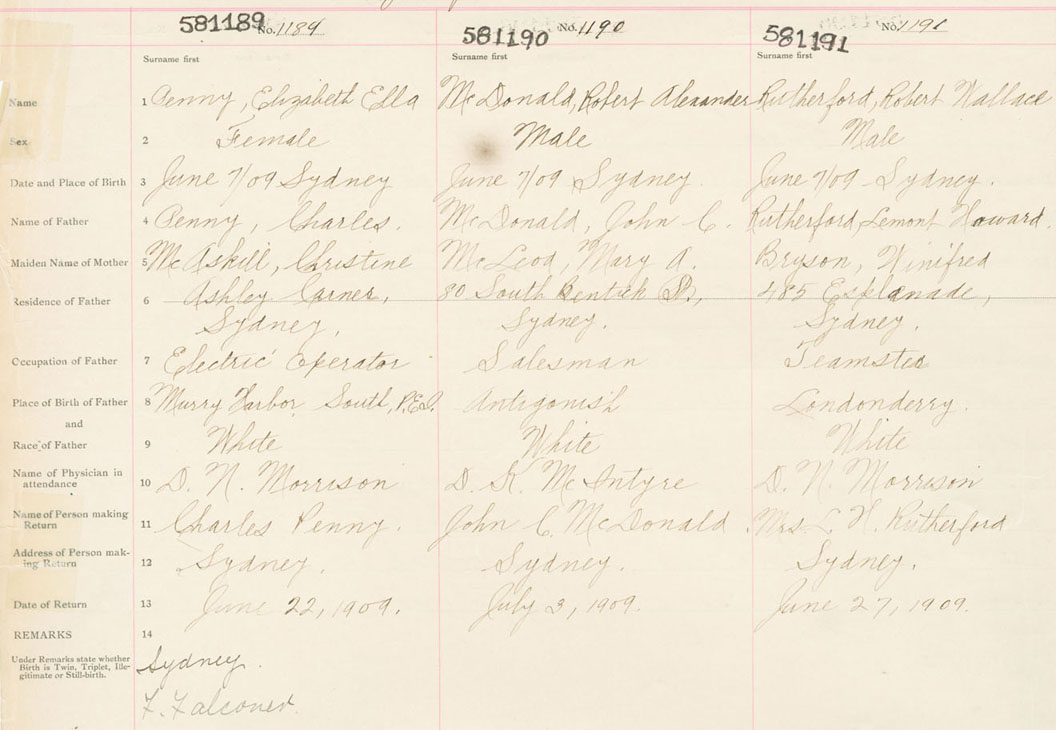 581189 No. 1189 581190 No. 1190 581191 No. 1191
Surname first Surname first Surname first
Name 1 Penny, Elizabeth Ella McDonald, Robert Alexander Rutherford, Robert Wallace
Sex 2 Female Male Male
Date and Place of Birth 3 June 7/09 Sydney June 7/09 Sydney. June 7/09 Sydney.
Name of Father 4 Penny, Charles. McDonald, John C. Rutherford, Lemont Howard.
Maiden Name of Mother 5 McAskill, Christine McLeod, Mary A. Bryson, Winifred
Residence of Father 6 Ashley Corner, 80 South Bentick St., 485 Esplanade,
Sydney. Sydney. Sydney.
Occupation of Father 7 Electric Operator Salesman Teamster
Place of Birth of Father 8 Murry Harbor South, P.E.I. Antigonish Londonderry.
and
Race of Father 9 White White White
Name of Physician in
attendance 10 D. N. Morrison D. K. McIntyre D. N. Morrison
Name of Person making
Return 11 Charles Penny. John C. McDonald Mrs. L. H. Rutherford
Address of Person mak-
ing Return 12 Sydney. Sydney. Sydney.
Date of Return 13 June 22, 1909. July 3, 1909. June 27, 1909.
REMARKS 14
Under Remarks state whether
Birth is Twin, Triplet, Ille-
gitimate or Still-birth.
Sydney.
F. Falconer.